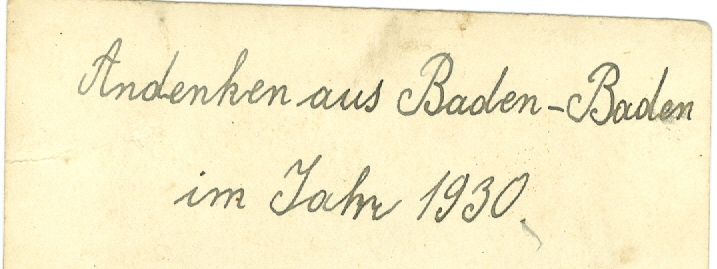 Andenken aus Baden-Baden
im Jahr 1930.